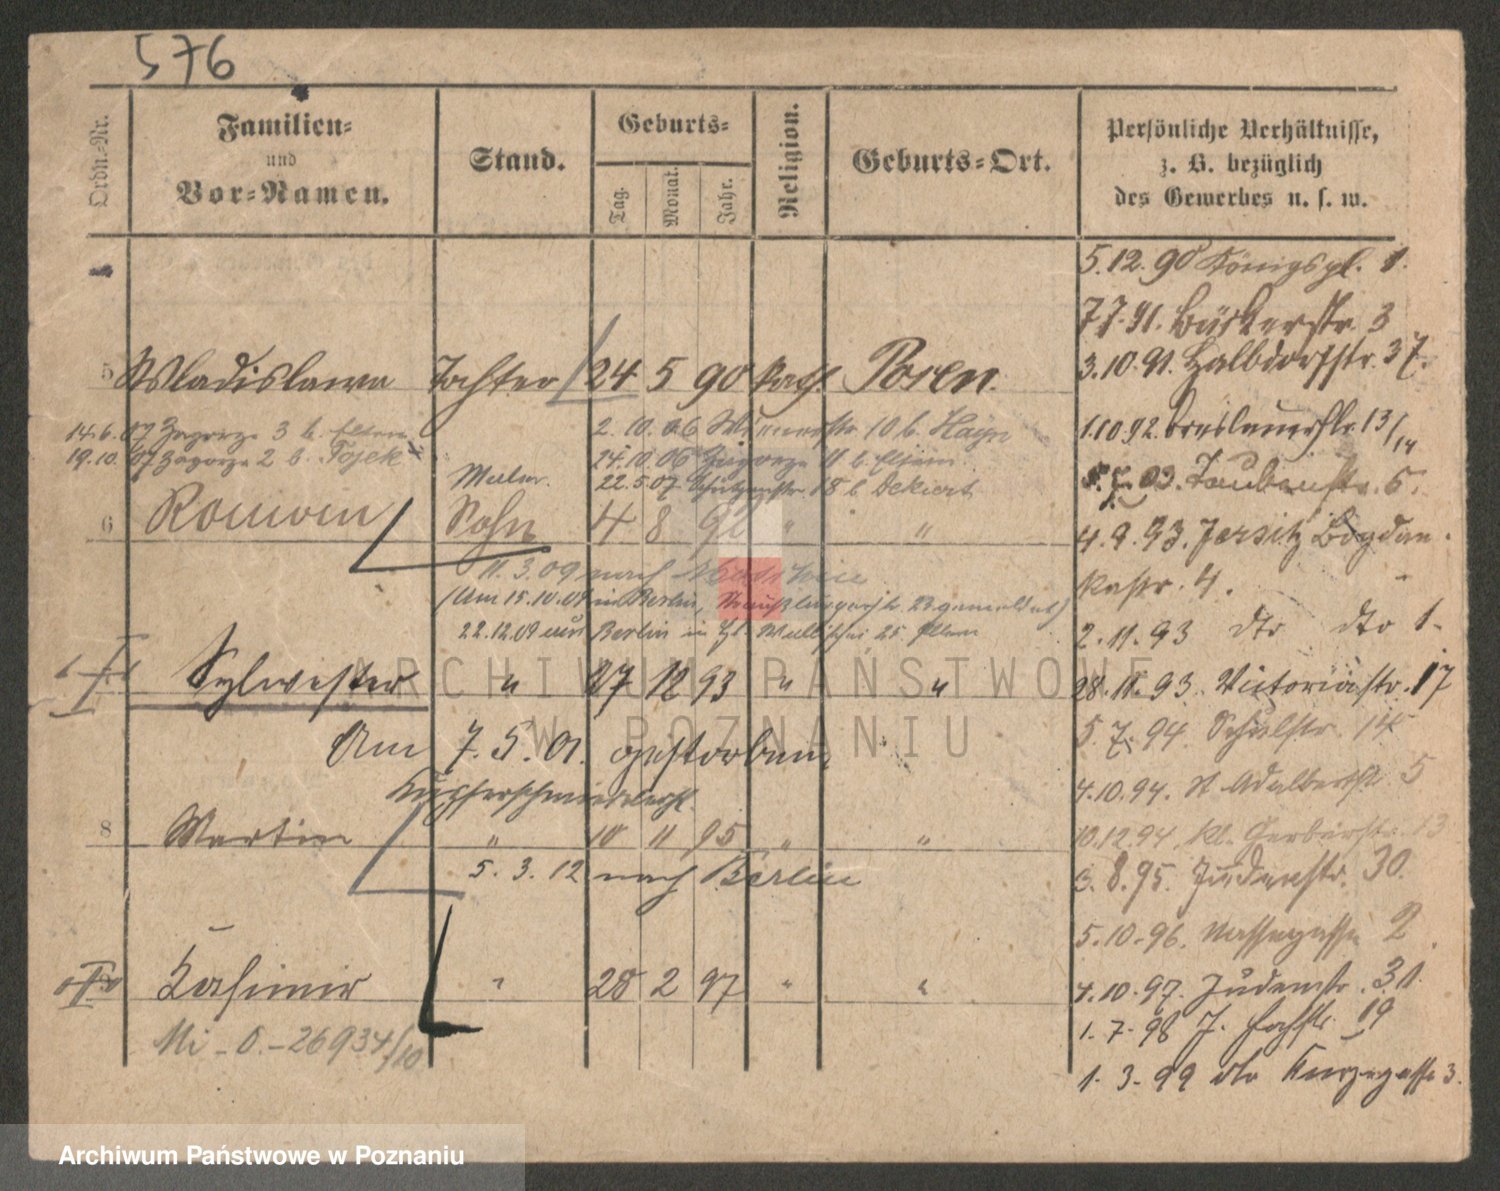 576
Ordn.-Nr.
Familien-
und
Vor-Namen.
Stand.
Geburts-
Tag.
Monat.
Jahr.
Religion.
Geburts-Ort.
Persönliche Verhältnisse,
z. B. bezüglich
des Gewerbes u. s. w.
5.12.90 Königspl. 1.
7.7.91. Bäckerstr. 3
3.10.91. Halbdorfstr. 37.
5 Wladislawa Tochter 24 5 90 kath. Posen.
14.6.07 Zagorze 3 b. Eltern
2.10.06 Wienerstr. 10 b. Hayn
1.10.92. Breslauerstr. 13/14
19.10.07 Zagorze 2 b.
24.10.06 Zagorze 11 b. Eltern
Maler.
22.5.07 Schützenstr. 18 b. Dekiert
03. Taubenstr. 5.
6 Roman Sohn 4 8 " "
4.9.93. Jersitz Bogdan-
kastr. 4.
11.3.09 nach
(Am 15.10.09 in Berlin, Straußbergerstr. 23 gemeldet)
22.12.09 aus Berlin in 25 Eltern
2.11.93 dto dto 1.
Sylwester " 27 12 93 " "
28.11.93. Victoriastr. 17
Am 7.5.01. gestorben.
5.7.94. Schulstr. 14
Kupferschmiedelehrl.
4.10.94. St Adalbertstr. 5
8 Martin " 10 11 95 " "
10.12.94. kl. Gerberstr. 13
5.3.12 nach Berlin
3.8.95. Judenstr. 30.
5.10.96. Wassergasse 2.
Kasimir " 28 2 97 " "
4.10.97. Judenstr. 31.
Mi - 0. - 26934/10
1.7.98 19
1.3.99 dto Kurzegasse 3.
ARCHIWUM PAŃSTWOWE
W POZNANIU
Archiwum Państwowe w Poznaniu